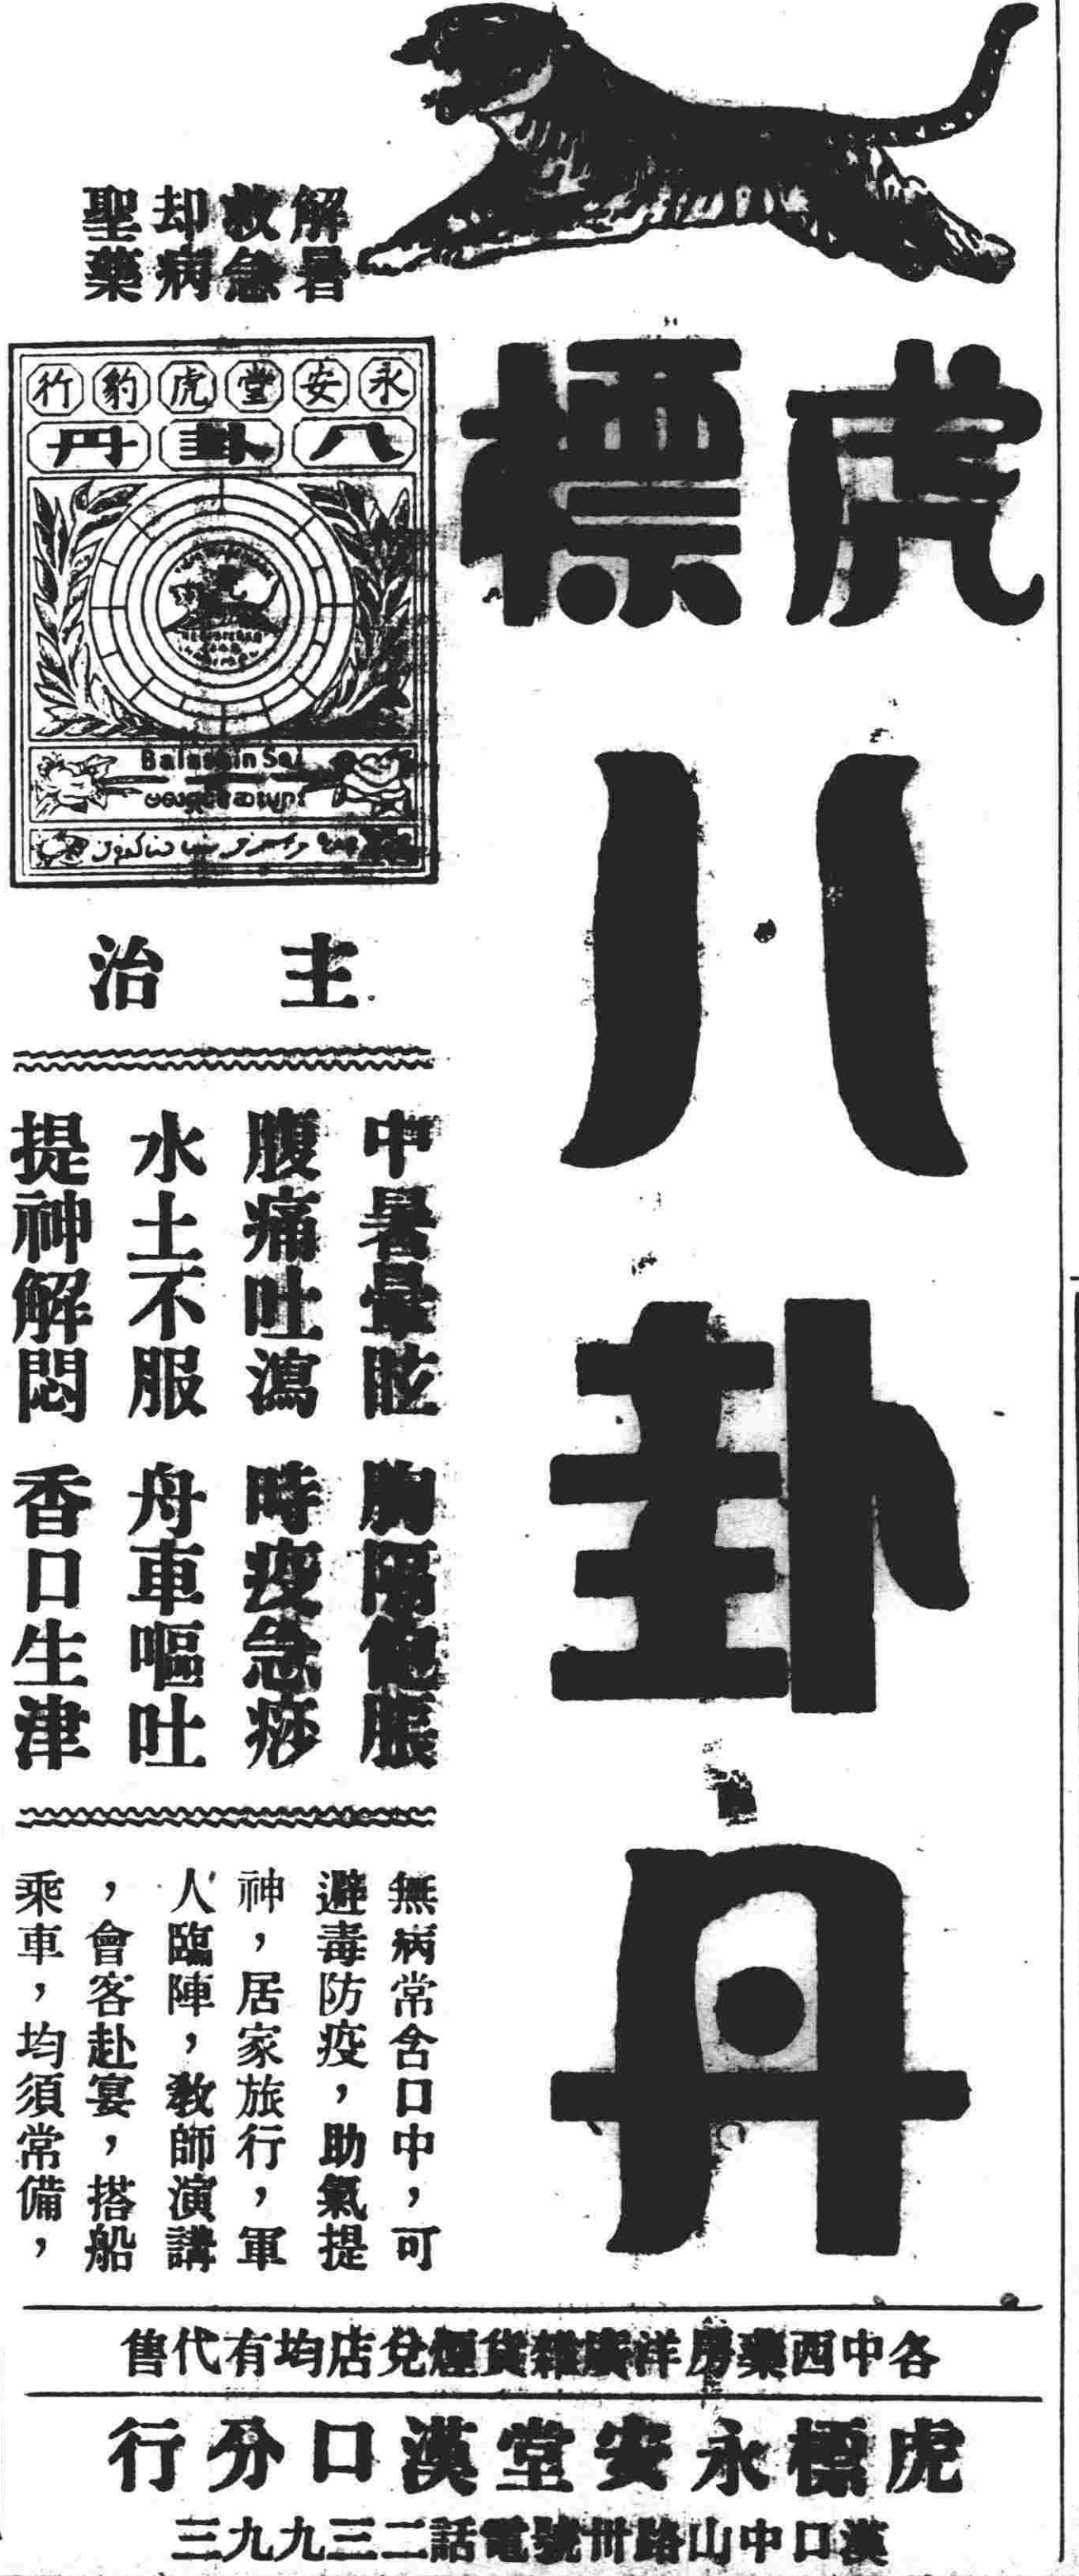 虎標
八卦丹
解暑
救急
却病
聖藥
永安堂虎豹行
八卦丹
主治
中暑暈眩 胸隔飽脹
腹痛吐瀉 時疫急痧
水土不服 舟車嘔吐
提神解悶 香口生津
無病常含口中，可
避毒防疫，助氣提
神，居家旅行，軍
人臨陣，教師演講
，會客赴宴，搭船
乘車，均須常備，
各中西藥房洋廣雜貨煙兌店均有代售
虎標永安堂漢口分行
漢口中山路卅號電話二三九九三